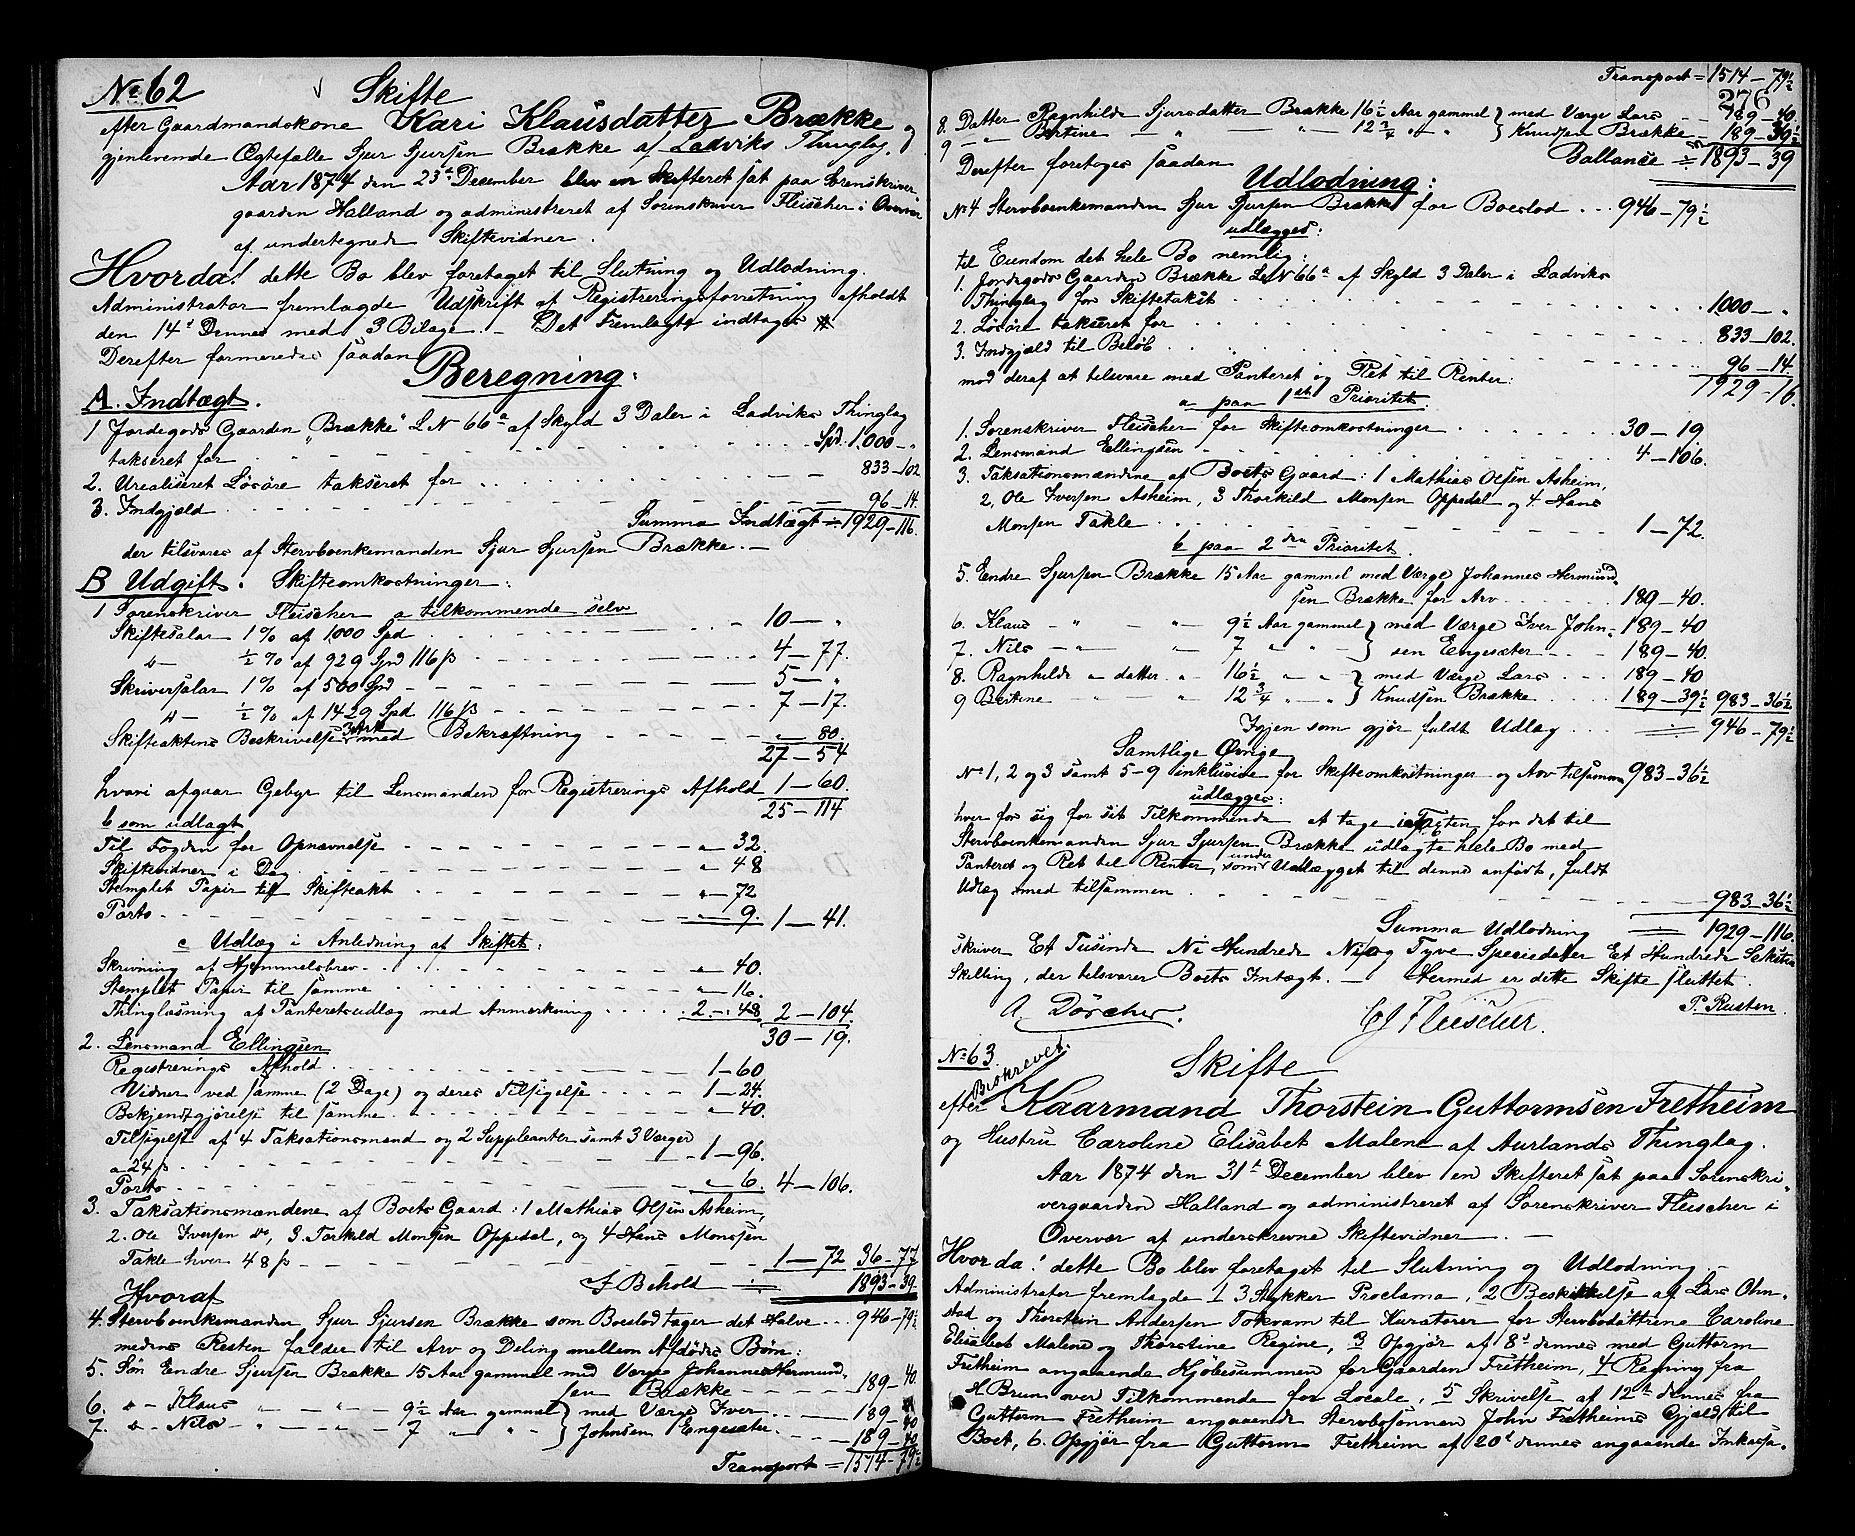 No 62 Skifte
efter Gaardmandskone Kari Klausdatter Brække og
gjenlevende Ægtefælle Sjur Sjursen Brække af Ladviks Thinglag.
Aar 1874 den 23de December blev en Skifteret sat paa Sorenskriver
gaarden Halland og administreret af Sorenskriver Fleischer i Overvær
af undertegnede Skiftevidner.
Hvorda! dette Bo blev foretaget til Slutning og Udlodning.
Administrator fremlagde Udskrift af Registreringsforretning afholdt
den 14de Dennes med 3 Bilage. – Det Fremlagte indtages #
Derefter formeredes saadan
Beregning:
A. Indtægt.
1 Jordegods Gaarden „Brække" LN 66a af Skyld 3 Daler i Ladviks Thinglag
takseret for Spd. 1000 – „
2. Urealiseret Løsøre takseret for 833–102
3. Indgjæld 96–14.
Summa Indtægt = 1929–116.
der tilsvares af Stervboenkemanden Sjur Sjursen Brække. –
B Udgift. Skifteomkostninger:
1 Sorenskriver Fleischer a tilkommende selv
Skiftesalar 1% af 1000 Spd 10 – „
do – ½% af 929 Spd 116 ß 4–77.
Skriversalar 1% af 500 Spd 5 – „
do – ½% af 1429 Spd 116 ß 7–17.
Skifteaktens Beskrivelse 3 Ark med Bekræftning „ 80.
27–54
hvori afgaar Gebyr til Lensmanden for Registrerings Afhold 1–60.
25–114
b som udlagt
Til Fogden for Opnævnelse „ 32.
Skiftevidner i Dag „ 48
Stemplet Papir til Skifteakt „ 72
Porto „ 9. 1–41.
c Udlæg i Anledning af Skiftet:
Skrivning af Hjemmelsbrev „ 40.
Stemplet Papir til samme „ 16.
Thinglæsning af Panteretsudlæg med Anmerkning 2–48 2–104.
30–19.
2. Lensmand Ellingsen
Registrerings Afhold 1–60
Vidner ved samme (2 Dage) og deres Tilsigelse 1–24.
Bekjendtgjørelse til samme „ 40.
Tilsigelse af 4 Taksationsmænd og 2 Suppleanter samt 3 Værger
a 24 ß 1–96.
Porto „ 6. 4–106.
3. Taksationsmændene af Boets Gaard: 1 Mathias Olsen Asheim,
2. Ole Iversen do, 3. Torkild Monsen Oppedal, og 4 Hans Monssen
Takle hver 48 ß 1–72 36–77
I Behold = 1893–39
Hvoraf
4. Stervboenkemanden Sjur Sjursen Brække som Boeslod tager det Halve 946–79½
medens Resten falder til Arv og Deling mellem Afdødes Børn:
5. Søn Endre Sjursen Brække 15 Aar gammel med Værge Johannes Hermund
sen Brække 189–40
6. do – Klaus „ – „ – 9½ Aar gammel } med Værge Iver 189–40
7. do – Nils „ – „ 7 „ „ } Johnsen Engesæter 189–40
Transport = 1514–79½
Transport = 1514–79½
276
8. Datter Ragnhilde Sjursdatter Brække 16½ Aar gammel } med Værge Lars 189–40.
9 „ Bertine – „ „ 12¾ „ „ } Knudsen Brække 189–39½
Ballance = 1893–39
Derefter foretages saadan
Udlodning:
No 4 Stervboenkemanden Sjur Sjursen Brække for Boeslod 946–79½
udlægges:
til Eiendom det hele Bo nemlig:
1. Jordegods Gaarden Brække LN 66a af Skyld 3 Daler i Ladviks
Thinglag for Skiftetakst 1000 – „
2. Løsøre takseret for 833–102.
3. Indgjæld til Beløb 96–14
1929–116.
mod deraf at tilsvare med Panteret og Ret til Renter:
a paa 1ste Prioritet.
1. Sorenskriver Fleischer for Skifteomkostninger 30–19
2. Lensmand Ellingsen 4–106.
3. Taksationsmændene af Boets Gaard: 1 Mathias Olsen Asheim,
2, Ole Iversen Asheim, 3 Thorkild Monsen Oppedal og 4 Hans
Monsen Takle 1–72.
b paa 2den Prioritet.
5. Endre Sjursen Brække 15 Aar gammel med Værge Johannes Hermund
sen Brække for Arv 189–40.
6. Klaus – „ – „ 9½ Aar gammel } med Værge Iver John- 189–40
7. Nils – „ „ 7 „ „ } sen Engesæter 189–40.
8. Ragnhilde „ datter „ 16½ „ „ } med Værge Lars 189–40
9 Bertine „ „ 12¾ „ „ } Knudsen Brække 189–39½ 983–36½
Igjen som gjør fuldt Udlæg = 946–79½
Samtlige Øvrige
No 1, 2 og 3 samt 5–9 inklusive for Skifteomkostninger og Arv tilsammen 983–36½
udlægges:
hver for sig for sit Tilkommende at tage i Posten for det til
Stervboenkemanden Sjur Sjursen Brække udlagte hele Bo med
Panteret og Ret til Renter, som under Udlægget til denne anført, fuldt
Udlæg med tilsammen 983–36½
Summa Udlodning = 1929–116.
skriver Et Tusinde Ni Hundrede Ni og Tyve Speciedaler Et Hundrede Seksten
Skilling, der tilsvarer Boets Indtægt. – Hermed er dette Skifte sluttet.
A. Dörcher. CJ Fleischer. P. Rusten
No 63. Beskrevet.
Skifte
efter Kaarmand Thorstein Guttormsen Fretheim
og Hustru Caroline Elisabet Malene af Aurlands Thinglag.
Aar 1874 den 31te December blev en Skifteret sat paa Sorenskri-
vergaarden Halland og administreret af Sorenskriver Fleischer i
Overvær af underskrevne Skiftevidner. –
Hvorda! dette Bo blev foretaget til Slutning og Udlodning. –
Administrator fremlagde 1 3 Stykker Proclama, 2 Beskikkelse af Lars Ohn-
stad og Thorstein Andersen Tokvam til Kuratorer for Stervbodøttrene Caroline
Elisabet Malene og Thorstine Regine, 3 Opgjør af 8de dennes med Guttorm
Fretheim angaaende Kjøbesummen for Gaarden Fretheim, 4 Regning fra
H. Brun over Tilkommende for Locale, 5 Skrivelse af 12te dennes fra
Guttorm Fretheim angaaende Stervbosønnen John Fretheims Gjæld til
Boet, 6. Opgjør fra Guttorm Fretheim af 20de dennes angaaende Inkassa-